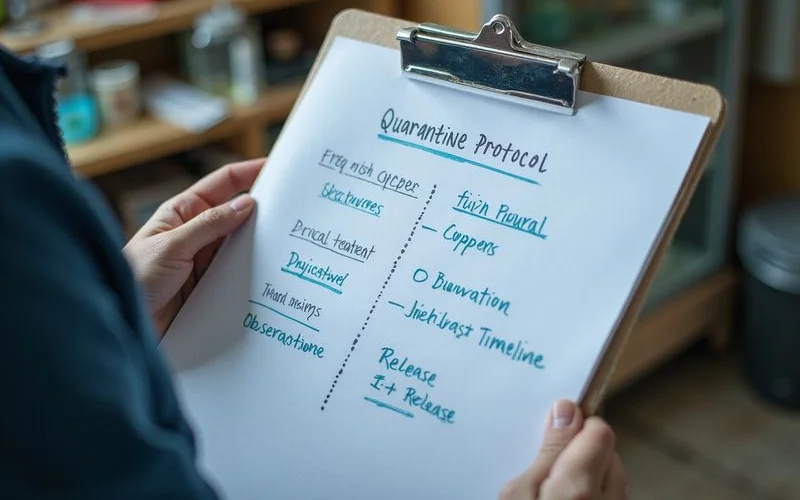 Quarantine Protocol
Freq nish cycper
Skathures
Drical teatent
Dnjicatwel
Thand insings
Obseraotione
fivin Ploural
– Coppers
O Bunwation
– Jiehlkast Timeline
Release
I-+ Release